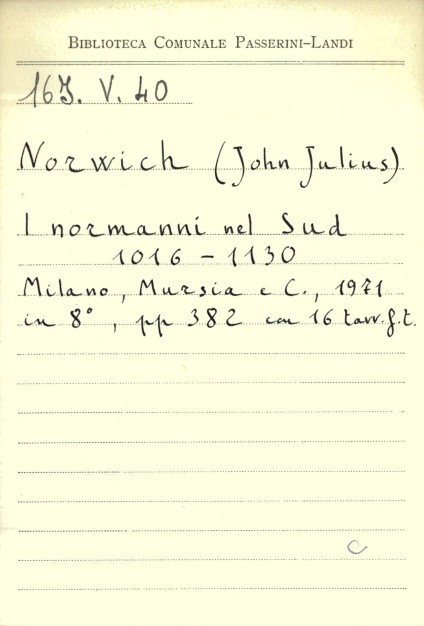 BIBLIOTECA COMUNALE PASSERINI-LANDI
16J. V. 40
Norwich (John Julius)
I normanni nel Sud
1016 - 1130
Milano, Mursia e C., 1971
in 8°, pp 382 con 16 tavv. f. t.
C